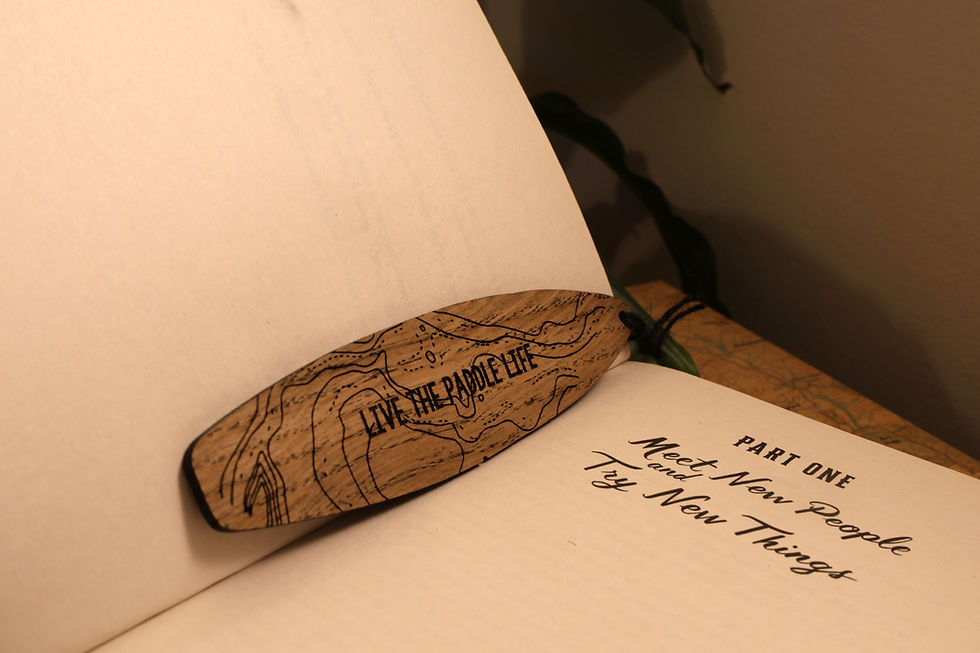 LIVE THE PADDLE LIFE
PART ONE
Meet New People
and
Try New Things